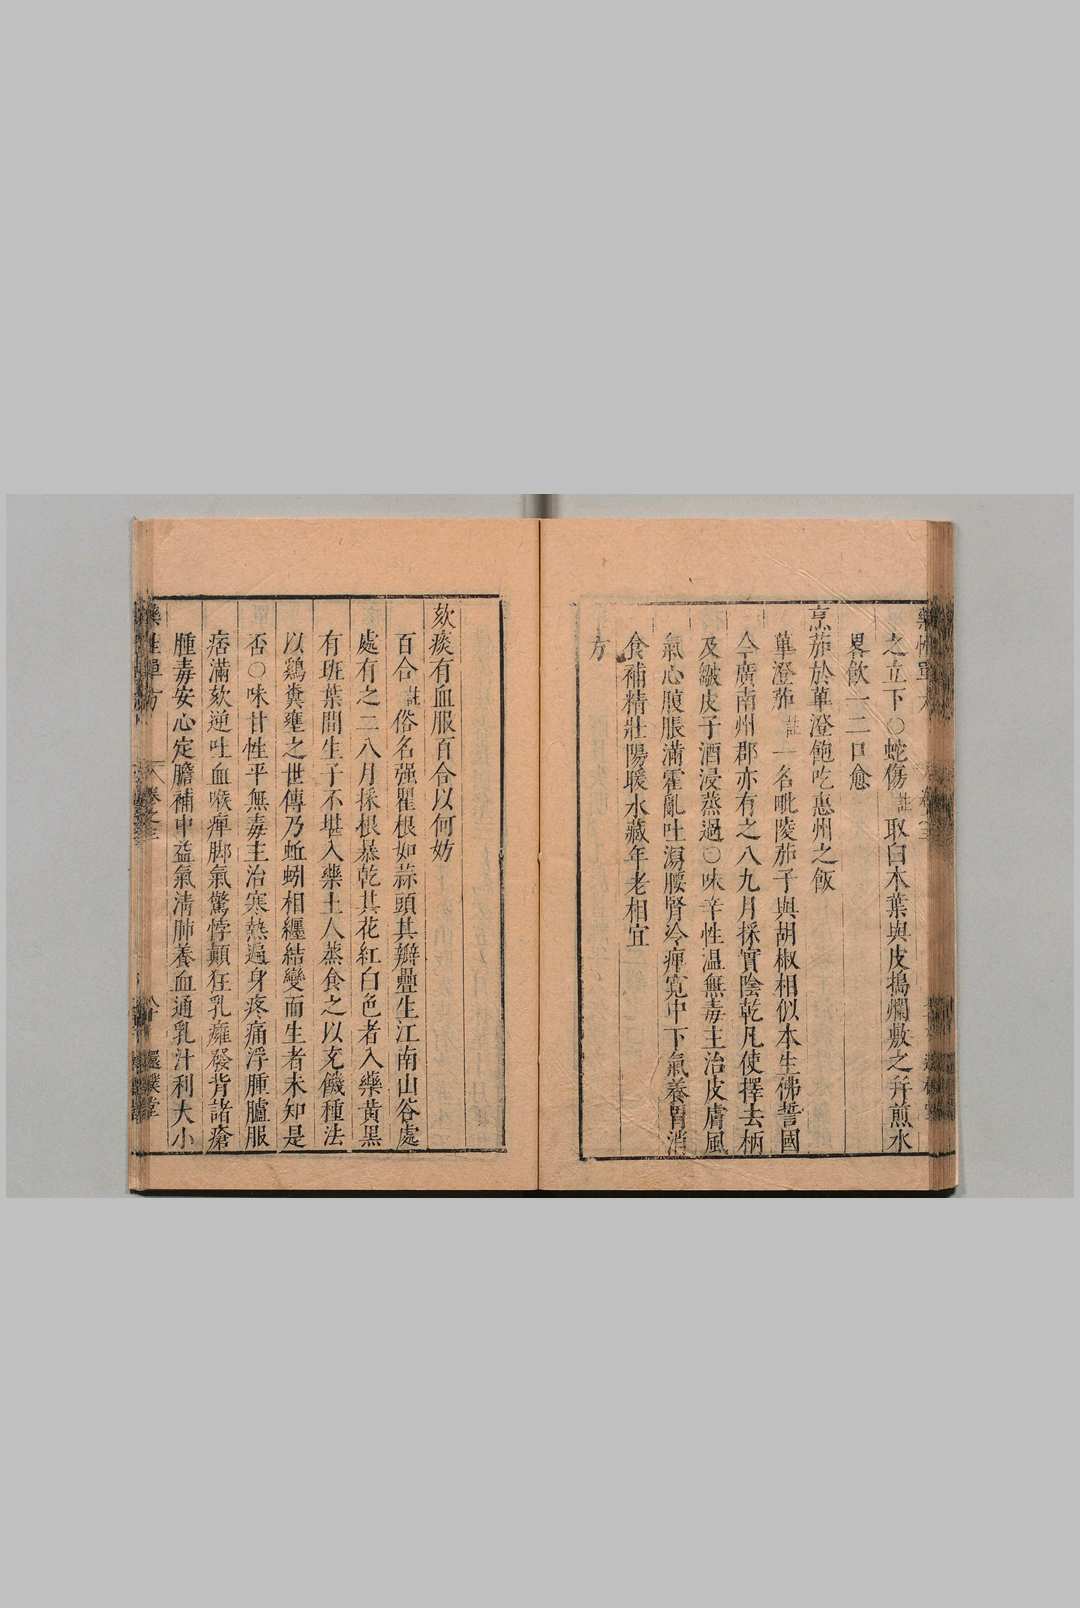 之立下○蛇傷註取白木葉與皮搗爛敷之幷煎水
畧飲一二口愈
烹茄於蓽澄飽吃惠州之飯
蓽澄茄註一名毗陵茄子與胡椒相似本生佛誓國
今廣南州郡亦有之八九月採實陰乾凡使擇去柄
及皺皮于酒浸蒸過○味辛性温無毒主治皮膚風
氣心腹脹滿霍亂吐瀉腰腎冷痺寛中下氣養胃消
食補精壯陽暖水藏年老相宜
方
欬痰有血服百合以何妨
百合註俗名强瞿根如蒜頭其瓣疊生江南山谷處
處有之二八月採根暴乾其花紅白色者入藥黄黑
有班葉間生子不堪入藥土人蒸食之以充饑種法
以鷄糞壅之世傳乃蚯蚓相纒結變而生者未知是
否○味甘性平無毒主治寒熱遍身疼痛浮腫臚服
痞滿欬逆吐血喉痺脚氣驚悸顚狂乳癰發背諸瘡
腫毒安心定膽補中益氣清肺養血通乳汁利大小
藥性單方 卷之三 八十 還樸堂